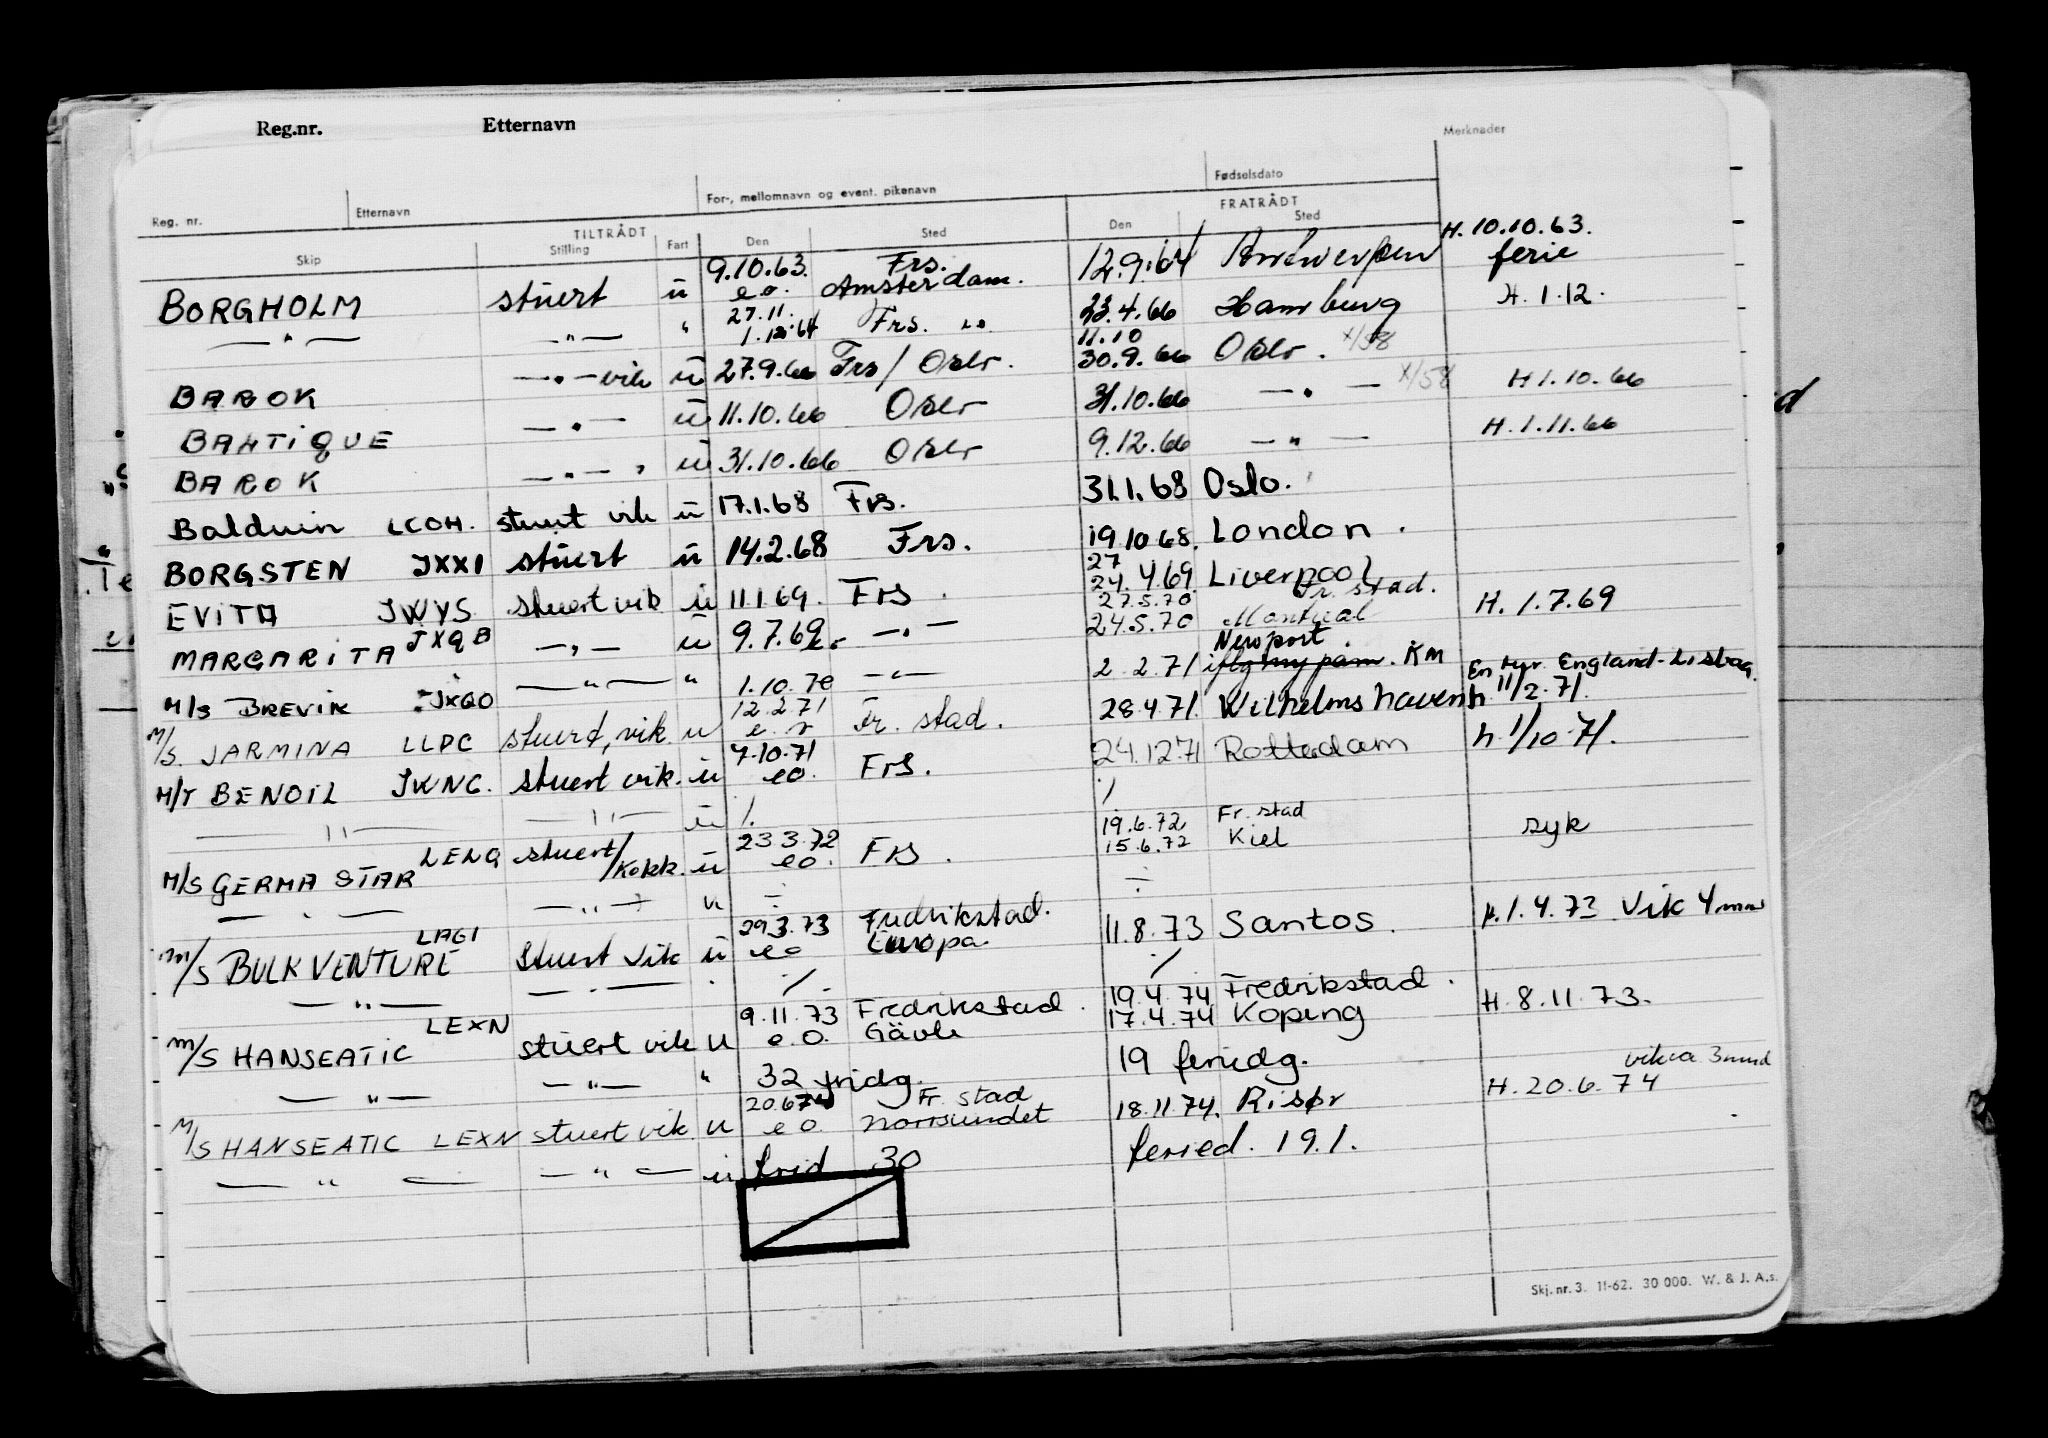 Reg.nr. Etternavn
Merknader
Fødselsdato
For-, mellomnavn og event. pikenavn
Reg. nr. Etternavn
TILTRÅDT FRATRÅDT
Skip Stilling Fart Den Sted Den Sted
H. 10.10.63.
9.10.63. Frs. 12.9.64 Antwerpen ferie
BORGHOLM stuert u e.o. Amsterdam.
27.11. H. 1.12.
— " — — " — " 1.12.64 Frs. " 23.4.66 Hamburg
11.10
BAROK — " — vik u 27.9.66 Frs / Oslo. 30.9.66 Oslo. x/58
BANTIQUE — " — u 11.10.66 Oslo 31.10.66 — " — x/58 H 1.10.66
BAROK — " — " u 31.10.66 Oslo 9.12.66 — " — H. 1.11.66
Balduin LCOH. stuert vik u 17.1.68 Frs. 31.1.68 Oslo.
BORGSTEN JXXI stuert u 14.2.68 Frs. 19.10.68. London.
27
EVITA JWYS stuert vik u 11.1.69. Frs. 24.4.69 Liverpool
27.5.70 Fr. stad.
MARGARITA JXQB — " — u 9.7.69 — " — 24.5.70 Montreal H. 1.7.69
Newport.
M/S BREVIK JXGO — " — " 1.10.70 — " — 2.2.71 KM En tur England-Lisboa.
12.2.71 h 11/2.71.
M/S. JARMINA LLPC stuert, vik u Fr. stad. 28.4.71. Wilhelmshaven
7.10.71
M/T BENOIL JKNG. stuert vik. u eo. Frs. 24.12.71 Rotterdam h. 1/10-71.
— " — — " — u %. /
23.3.72 19.6.72 Fr. stad
M/S GERMA STAR LENQ stuert/Kokk. u eo. Frs. 15.6.72 Kiel syk
— " — — " — u ÷ ÷
29.3.73 Fredrikstad.
M/S BULK VENTURE LAGI Stuert vik u eo Europa. 11.8.73 Santos. H. 1.4.73 Vik 4 mnd
— " — — " — " ./. ./.
9.11.73 Fredrikstad. 19.4.74 Fredrikstad.
M/S HANSEATIC LEXN stuert vik u e.o. Gävle 17.4.74 Köping H. 8.11.73.
— " — — " — " 32 fridg. 19 feriedg.
20.6.74 Fr. stad vikar 3 mnd
M/S HANSEATIC LEXN stuert vik. u e o. Norrsundet 18.11.74. Risør H. 20.6.74
— " — — " — u frid 30 feried. 19.1.
Skj. nr. 3. 11-62. 30 000. W. & J. A.s.